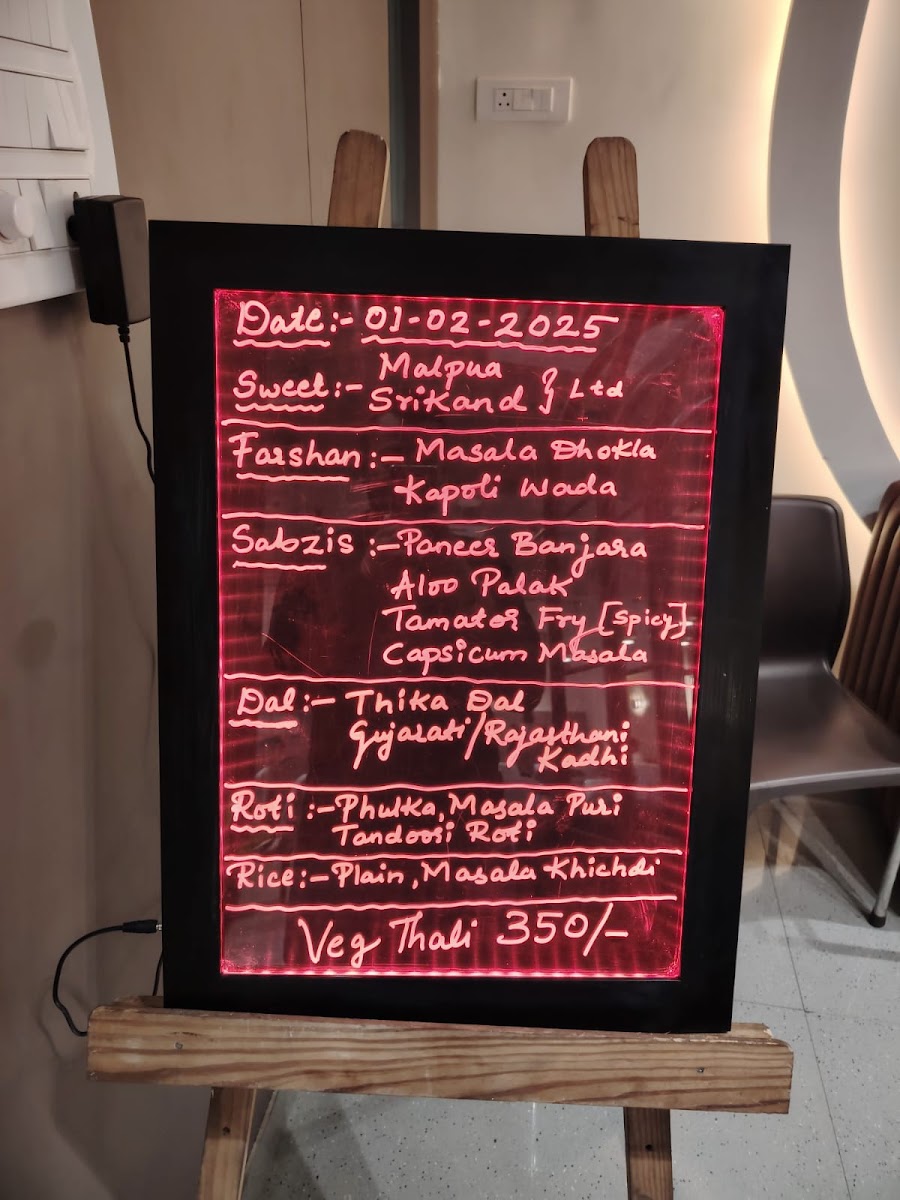 Date:- 01-02-2025
Sweet:- Malpua
Srikand } Ltd
Farshan:- Masala Dhokla
Kapoli Wada
Sabzis :- Paneer Banjara
Aloo Palak
Tamator Fry [Spicy]
Capsicum Masala
Dal:- Thika Dal
Gujarati/Rajasthani
Kadhi
Roti :- Phulka, Masala Puri
Tandoori Roti
Rice:- Plain, Masala Khichdi
Veg Thali 350/-